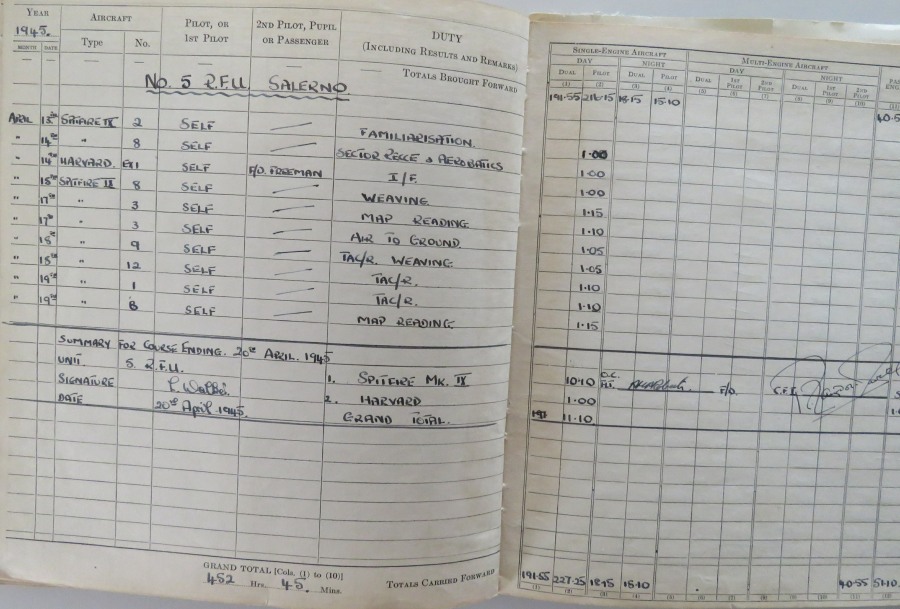 YEAR AIRCRAFT PILOT, OR 1ST PILOT 2ND PILOT, PUPIL OR PASSENGER DUTY (INCLUDING RESULTS AND REMARKS)
1945.
MONTH DATE Type No.
— — — — — — — TOTALS BROUGHT FORWARD
No. 5 R.F.U. SALERNO
APRIL 13th SPITFIRE IX 2 SELF — FAMILIARISATION
" 14th " 8 SELF — SECTOR RECCE & AEROBATICS
" 14th HARVARD. EX1 SELF F/O. FREEMAN I/F.
" 15th SPITFIRE IX 8 SELF — WEAVING
" 17th " 3 SELF — MAP READING
" 17th " 3 SELF — AIR TO GROUND.
" 18th " 9 SELF — TAC/R. WEAVING
" 18th " 12 SELF — TAC/R.
" 19th " 1 SELF — TAC/R.
" 19th " 8 SELF — MAP READING
SUMMARY FOR COURSE ENDING. 20th APRIL. 1945
UNIT. 5. R.F.U. 1. SPITFIRE MK. IX
SIGNATURE 2. HARVARD
DATE 20th April 1945. GRAND TOTAL.
GRAND TOTAL [Cols. (1) to (10)]
452 Hrs. 45. Mins. TOTALS CARRIED FORWARD
SINGLE-ENGINE AIRCRAFT MULTI-ENGINE AIRCRAFT
DAY NIGHT DAY NIGHT
DUAL PILOT DUAL PILOT DUAL 1ST PILOT 2ND PILOT DUAL 1ST PILOT 2ND PILOT
(1) (2) (3) (4) (5) (6) (7) (8) (9) (10) (11)
191.55 216.15 18.15 15.10 40.5
1.00
1.00
1.00
1.15
1.10
1.05
1.05
1.10
1.10
1.15
10.10 O.C. F/O. C.F.I.
1.00
11.10
191.55 227.25 18.15 15.10 40.55 51.10
(1) (2) (3) (4) (5) (6) (7) (8) (9) (10) (11) (12)